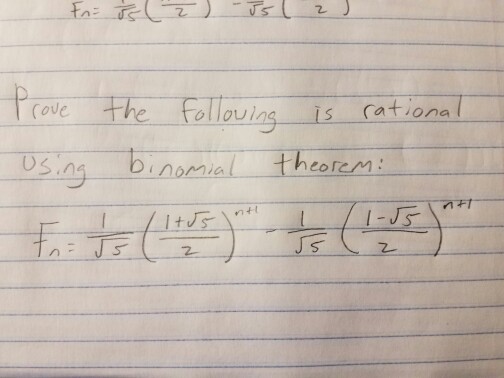 Fn = 1/√5 ( /2 ) - /√5 ( 2 )
Prove the following is rational
Using binomial theorem:
Fn = 1/√5 ((1+√5)/2)^(n+1) - 1/√5 ((1-√5)/2)^(n+1)